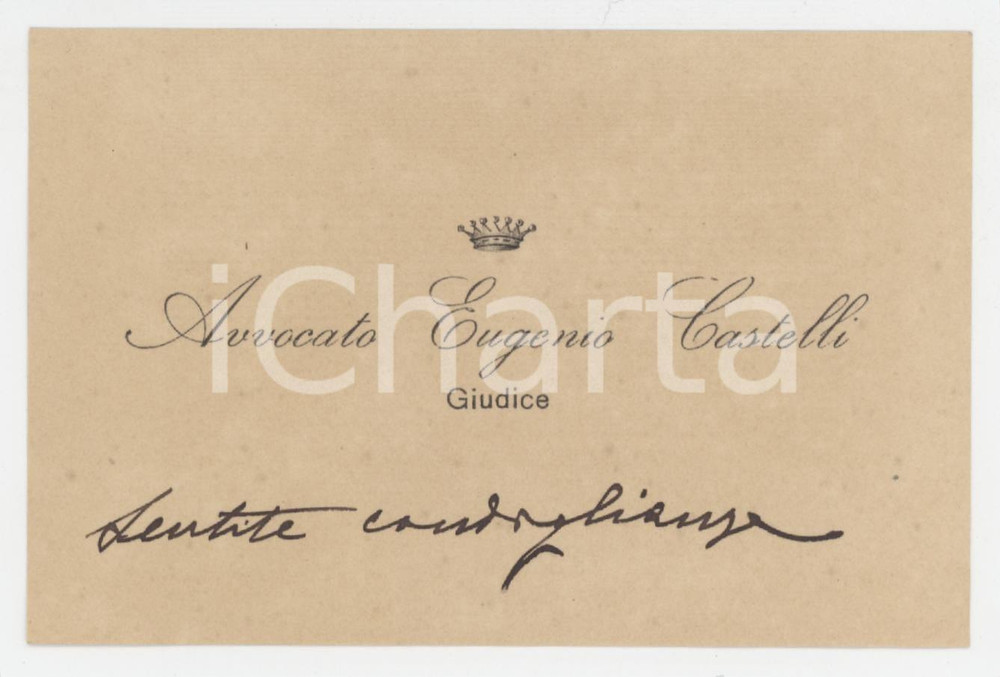 Avvocato Eugenio Castelli
Giudice
iCharta
Sentite condoglianze